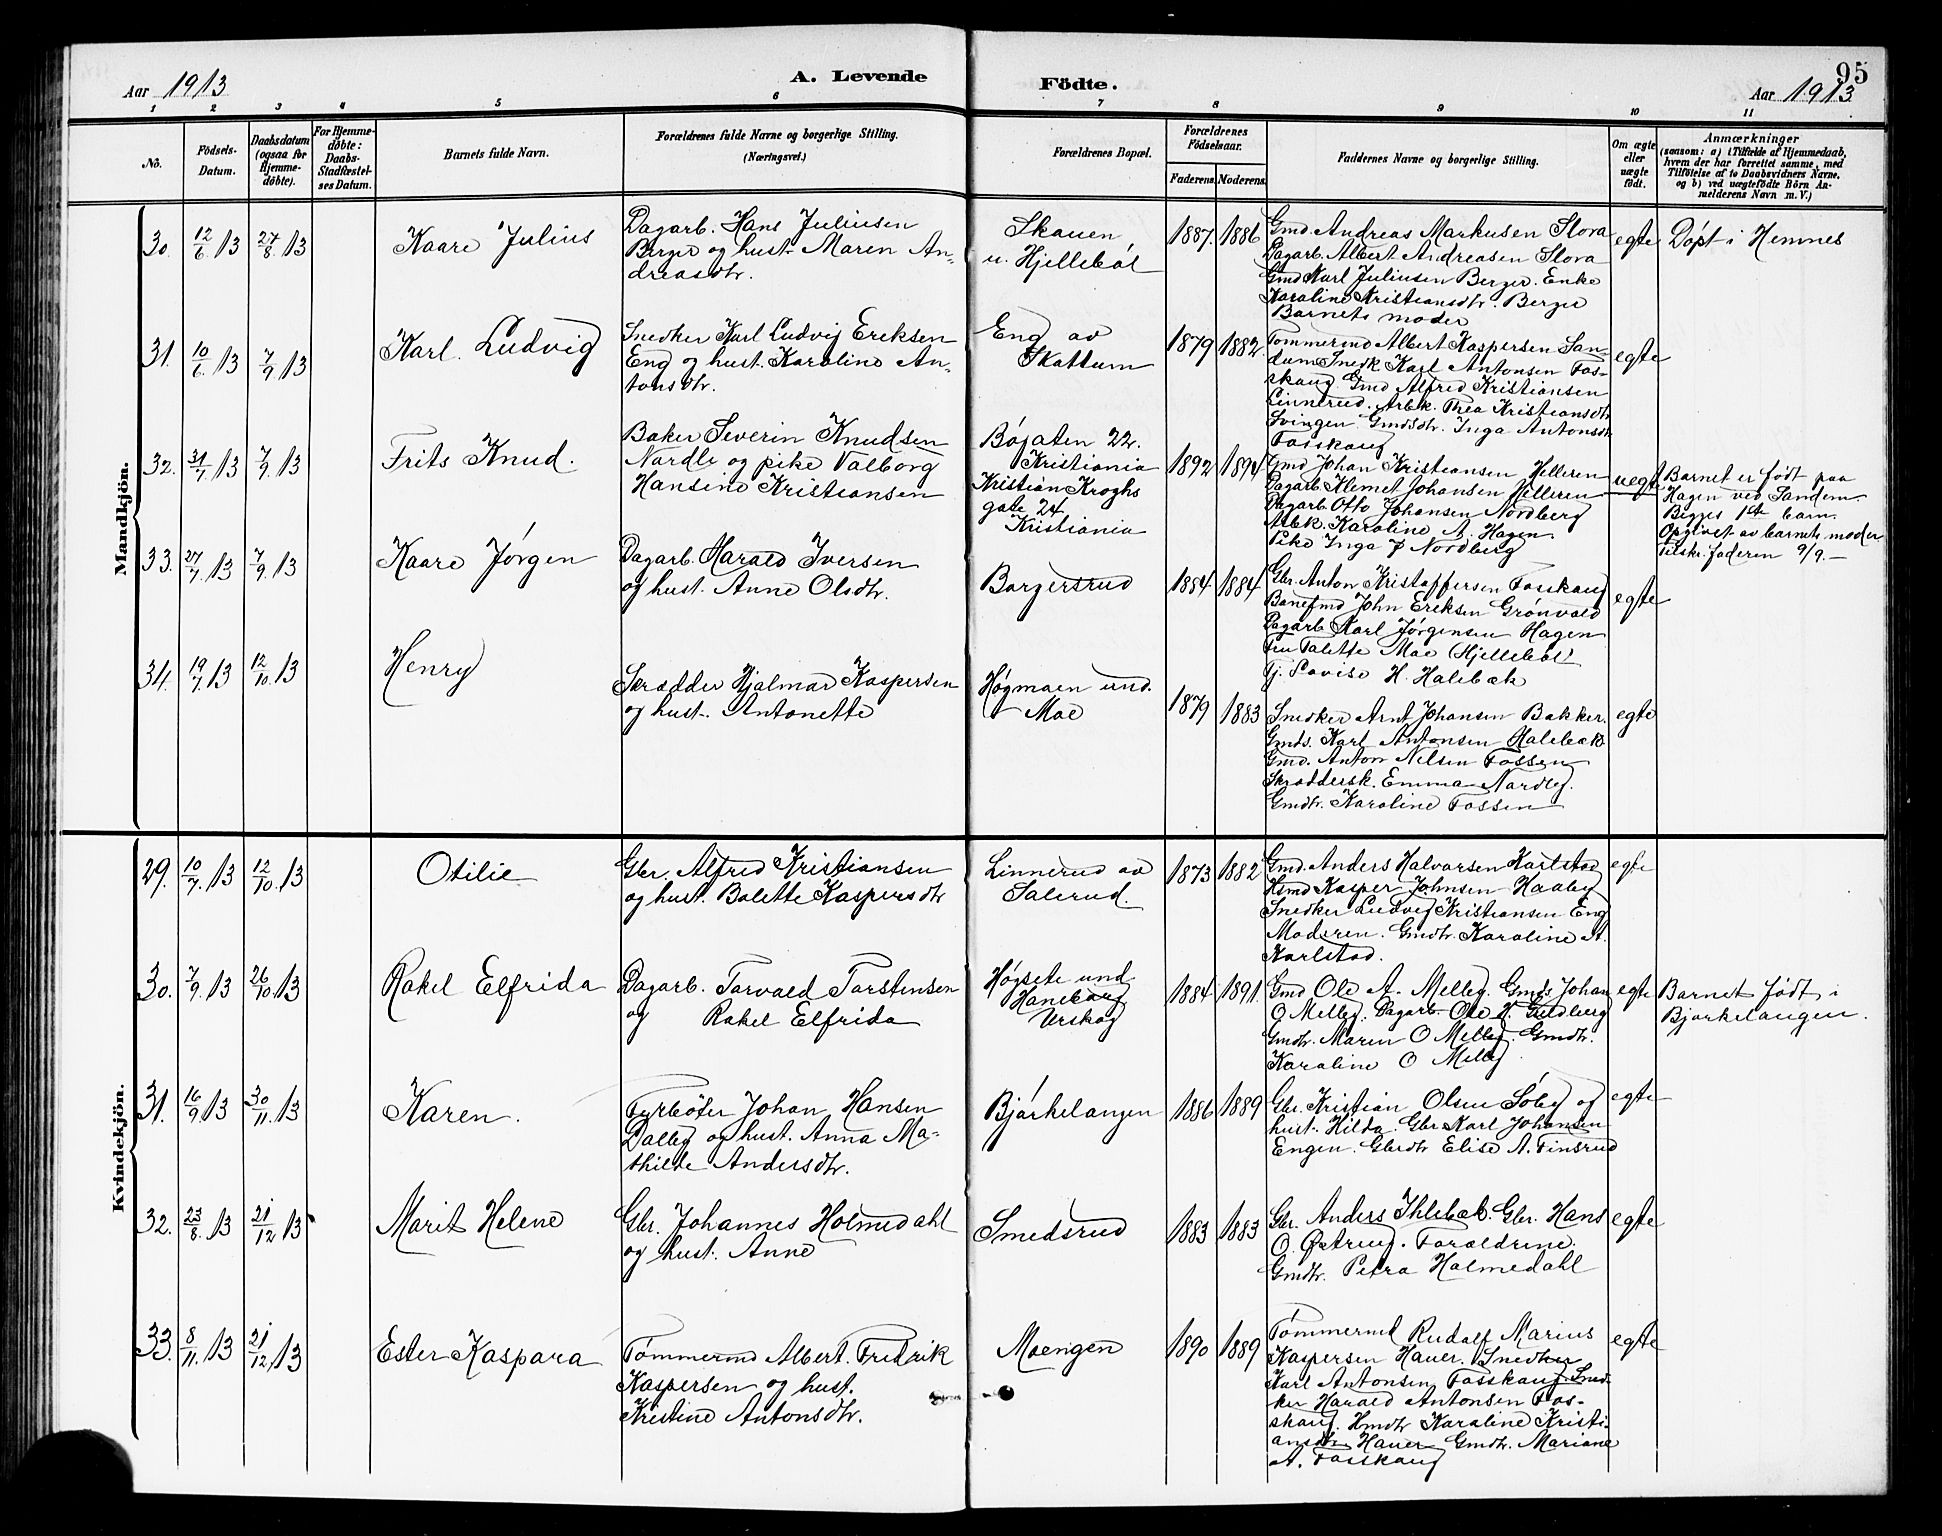 95
Aar 1913
A. Levende
Födte.
Aar 1913
1 2 3 4 5 6 7 8 9 10 11
No.
Födsels-
Datum.
Daabsdatum
(ogsaa for
Hjemme-
döbte).
For Hjemme-
döbte:
Daabs-
Stadfæstel-
ses Datum.
Barnets fulde Navn.
Forældrenes fulde Navne og borgerlige Stilling.
(Næringsvei.)
Forældrenes Bopæl.
Forældrenes
Födselsaar.
Faderens. Moderens.
Faddernes Navne og borgerlige Stilling.
Om ægte
eller
uægte
födt.
Anmærkninger
(saasom: a) i Tilfælde af Hjemmedaab,
hvem der har forrettet samme, med
Tilföielse af to Daabsvidners Navne,
og b) ved uægtefödte Börn An-
melderens Navn m. V.)
Mandkjön.
30. 12/6 13 27/8 13
Kaare Julius
Dagarb. Hans Juliusen
Berger og hust. Maren An-
dreasdtr.
Skauen
u. Hjellebøl
1887. 1886
Gmd. Andreas Markusen Slora
Dagarb. Albert Andreasen Slora
Gmd Karl Juliusen Berger. Enke
Karoline Kristiansdtr. Berger
Barnets moder
egte
Døpt i Hemnes
31. 10/6 13 7/9 13
Karl Ludvig
Snedker Karl Ludvig Eriksen
Eng og hust. Karoline An-
tonsdtr.
Eng av
Skattum
1879 1882
Tømmermd Albert Kaspersen San-
dum Snedk Karl Antonsen Fos-
skaug. Gmd Alfred Kristiansen
Linnerud. Arbk. Thea Kristiansdtr
Svingen Gmdsdtr. Inga Antonsdtr
Fosskaug
egte
32. 31/7 13 7/9 13
Frits Knud.
Baker Severin Knudsen
Nordli og pike Valborg
Hansine Kristiansen
Bøgaten 22.
Kristiania
Kristian Kroghs
gate 24
Kristiania
1892 1894
Gmd Johan Kristiansen Helleren
Dagarb. Klemet Johansen Helleren
Dagarb. Otto Johansen Nordberg
Arbk. Karoline A. Hagen
Pike Inga J Nordberg
uegte
Barnet er født paa
Hagen ved Sandem.
Begges 1ste barn.
Opgivet av barnets moder
Tilskr. faderen 9/9.—
33. 27/7 13 7/9 13
Kaare Jørgen
Dagarb. Harald Iversen
og hust. Anne Olsdtr.
Borgersrud
1884 1884
Gbr. Anton Kristoffersen Fosskaug
Banefmd John Eriksen Grønvold
Dagarb Karl Jørgensen Hagen
Fru Talette Moe (Hjellebøl)
Tj. Lovise H. Halebæk
egte
34. 19/7 13 12/10 13
Henry
Skrædder Hjalmar Kaspersen
og hust. Antonette
Høgmoen und.
Moe
1879 1883
Snedker Arnt Johansen Bakker.
Gmds. Karl Antonsen Halebæk
Gmd. Anton Nilsen Fossen
Skræddersk. Emma Nordby.
Gmdtr. Karoline Fossen
egte
Kvindekjön.
29. 10/7 13 12/10 13
Otilie
Gbr. Alfred Kristiansen
og hust. Bolette Kaspersdtr
Linnerud av
Salerud.
1873 1882
Gmd. Anders Halvorsen Karlstad
Hsmd Kasper Johnsen Haaby
Snedker Ludvig Kristiansen Eng
Moderen. Gmdtr. Karoline A.
Karlstad.
egte
30. 7/9 13 26/10 13
Rakel Elfrida
Dagarb. Torvald Torstensen
og Rakel Elfrida
Høgsete und
Haneborg
Urskog
1884 1891.
Gmd Ole A. Melleg. Gmds Johan
O Melleg. Dagarb. Ole H.
Gmdtr. Maren O Melleg. Gmdtr.
Karoline O Melleg
egte
Barnet født i
Bjørkelangen.
31. 16/9 13 30/11 13
Karen.
Fyrbøter Johan Hansen
Dalby og hust. Anna Ma-
thilde Andersdtr.
Bjørkelangen
1886 1889
Gbr. Kristian Olsen Søby og
hust. Hilda. Gbr Karl Johansen
Engen. Gbrdtr Elise A. Finsrud
egte
32. 23/8 13 21/12 13
Marit Helene
Gbr. Johannes Holmedahl
og hust. Anne
Smedsrud
1883 1883
Gbr. Anders Ihlebæk. Gbr. Hans
O. Østreng. Forældrene.
Gmdtr. Petra Holmedahl
egte
33. 8/11 13 21/12 13
Ester Kaspara
Tømmermd Albert Fredrik
Kaspersen og hust.
Kristine Antonsdtr.
Moengen
1890 1889
Tømmermd Rudolf Marius
Kaspersen Hauer. Snedker
Karl Antonsen Fosskaug Sned-
ker Harald Antonsen Fos-
skaug. Hmdtr Karoline Kristi-
ansdtr Hauer Gmdtr. Mariane
A. Fosskaug
egte